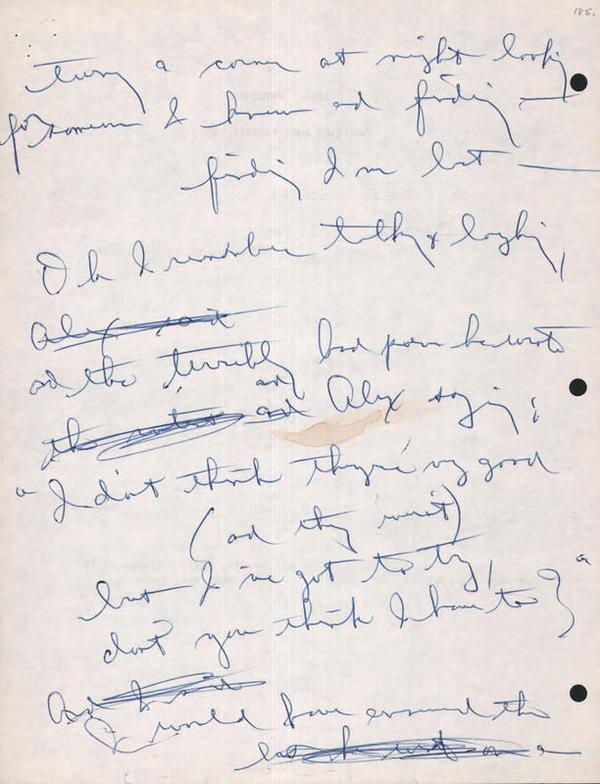 185.
turning a corner at night looking
for someone I knew and finding —
finding I'm lost —
Oh I remember talking & laughing,
Alex said
and the terribly bad poem he wrote
and Alex saying;
"I don't think they're very good
(and they weren't)
but I've got to try,
don't you think I have to?"
And I said
I would have around the